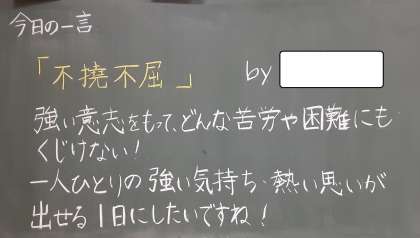 今日の一言
「不撓不屈」 by
強い意志をもって、どんな苦労や困難にも
くじけない!
一人ひとりの強い気持ち・熱い思いが
出せる1日にしたいですね!